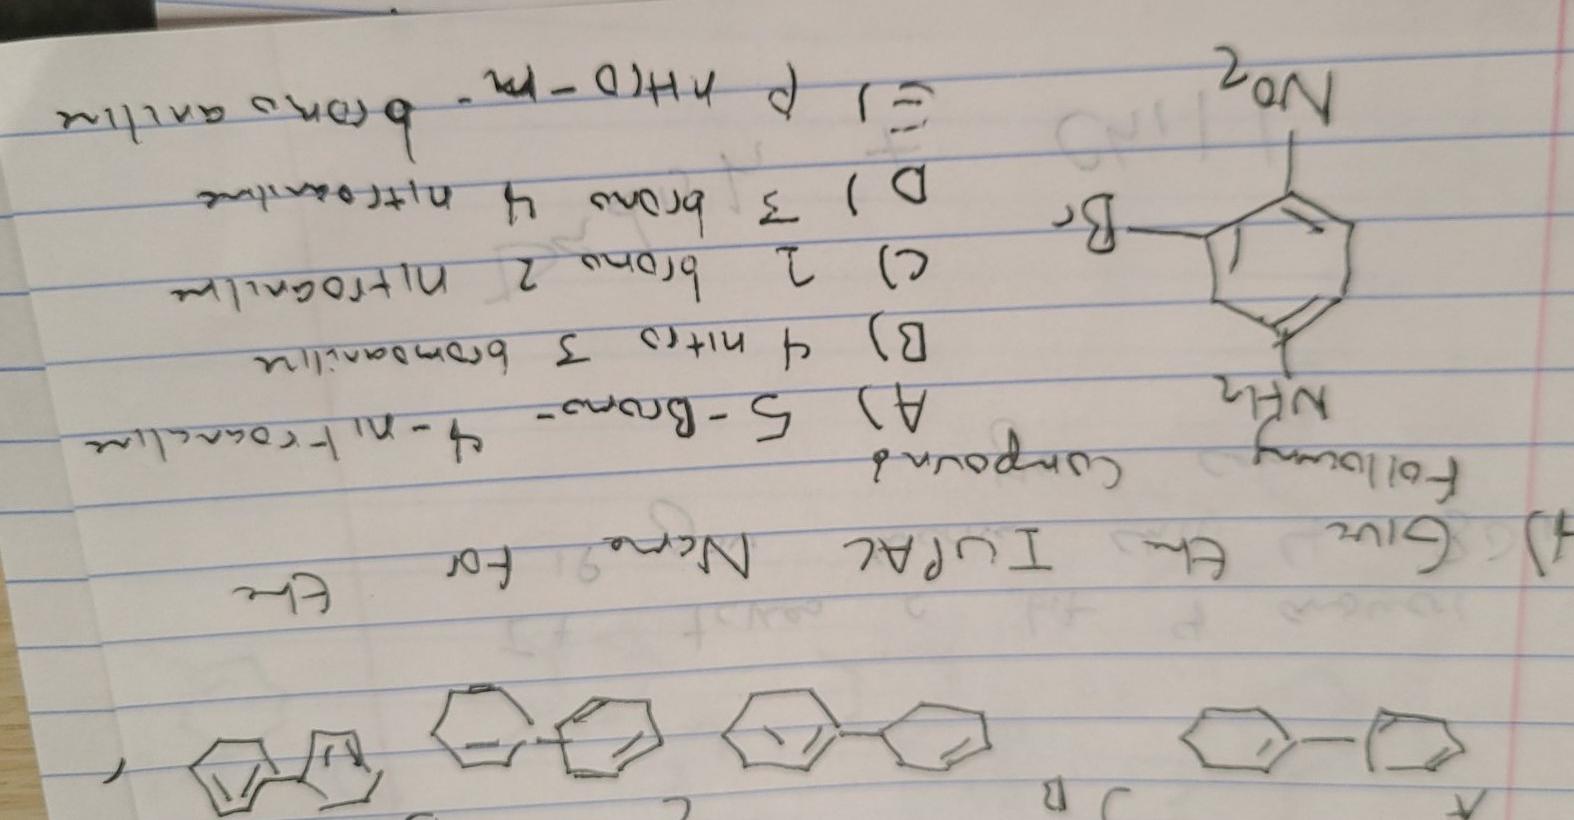 A
B
C
4) Give the IUPAC Name for the
Following compound
NH2
Br
NO2
A) 5-Bromo-4-nitroaniline
B) 4 nitro 3 bromoaniline
C) 1 bromo 2 nitroaniline
D) 3 bromo 4 nitroaniline
E) P nitro-m-bromo aniline